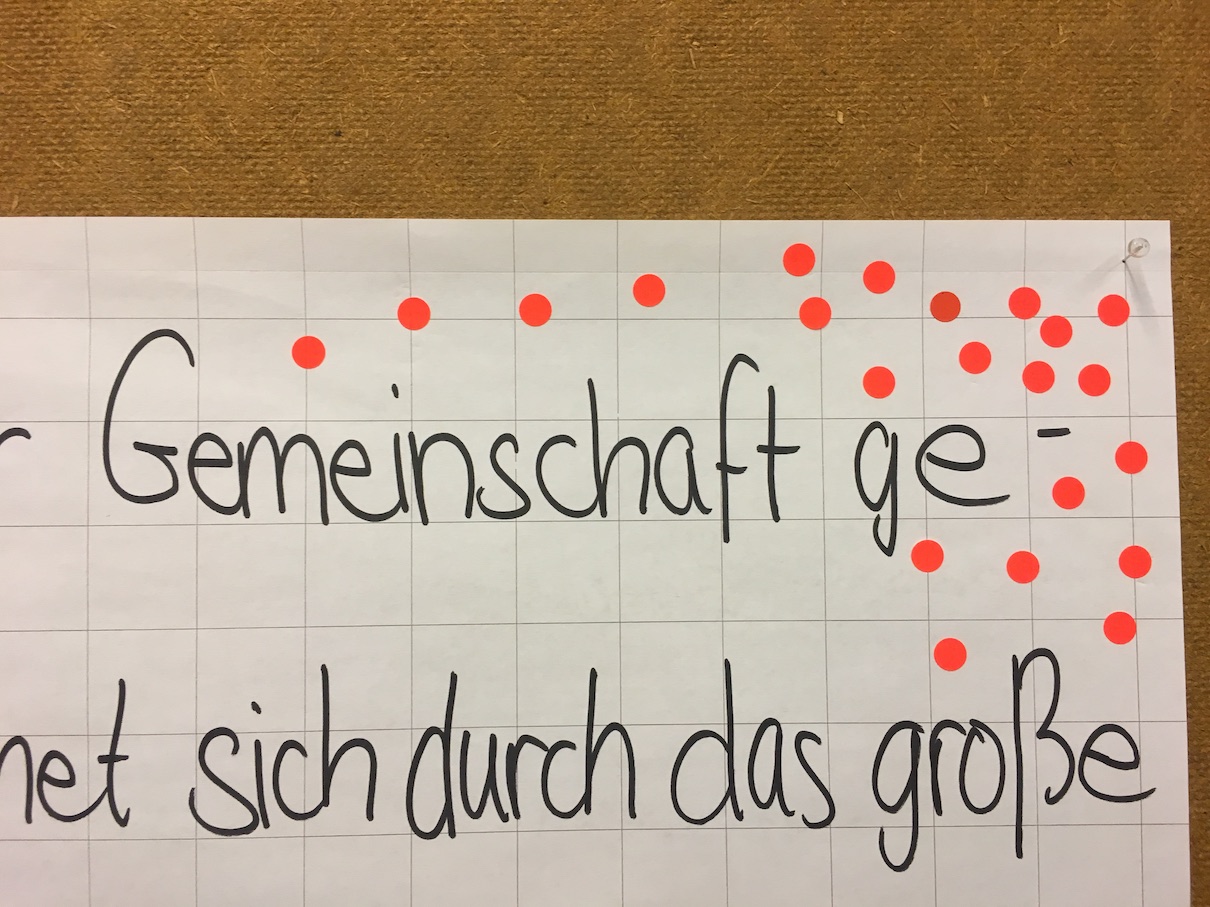 Gemeinschaft ge-
sich durch das große